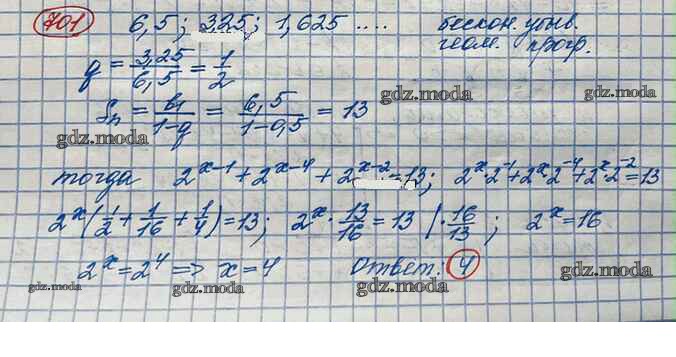 701 6,5; 3,25; 1,625 .... бескон. убыв.
геом. прогр.
q = 3,25/6,5 = 1/2
Sn = b1/(1-q) = 6,5/(1-0,5) = 13
тогда 2^(x-1) + 2^(x-4) + 2^(x-2) = 13; 2^x·2^(-1) + 2^x·2^(-4) + 2^x·2^(-2) = 13
2^x(1/2 + 1/16 + 1/4) = 13; 2^x · 13/16 = 13 | · 16/13; 2^x = 16
2^x = 2^4 => x = 4 Ответ: 4
gdz.moda
gdz.moda
gdz.moda
gdz.moda
gdz.moda
gdz.moda
gdz.moda
gdz.moda
gdz.moda